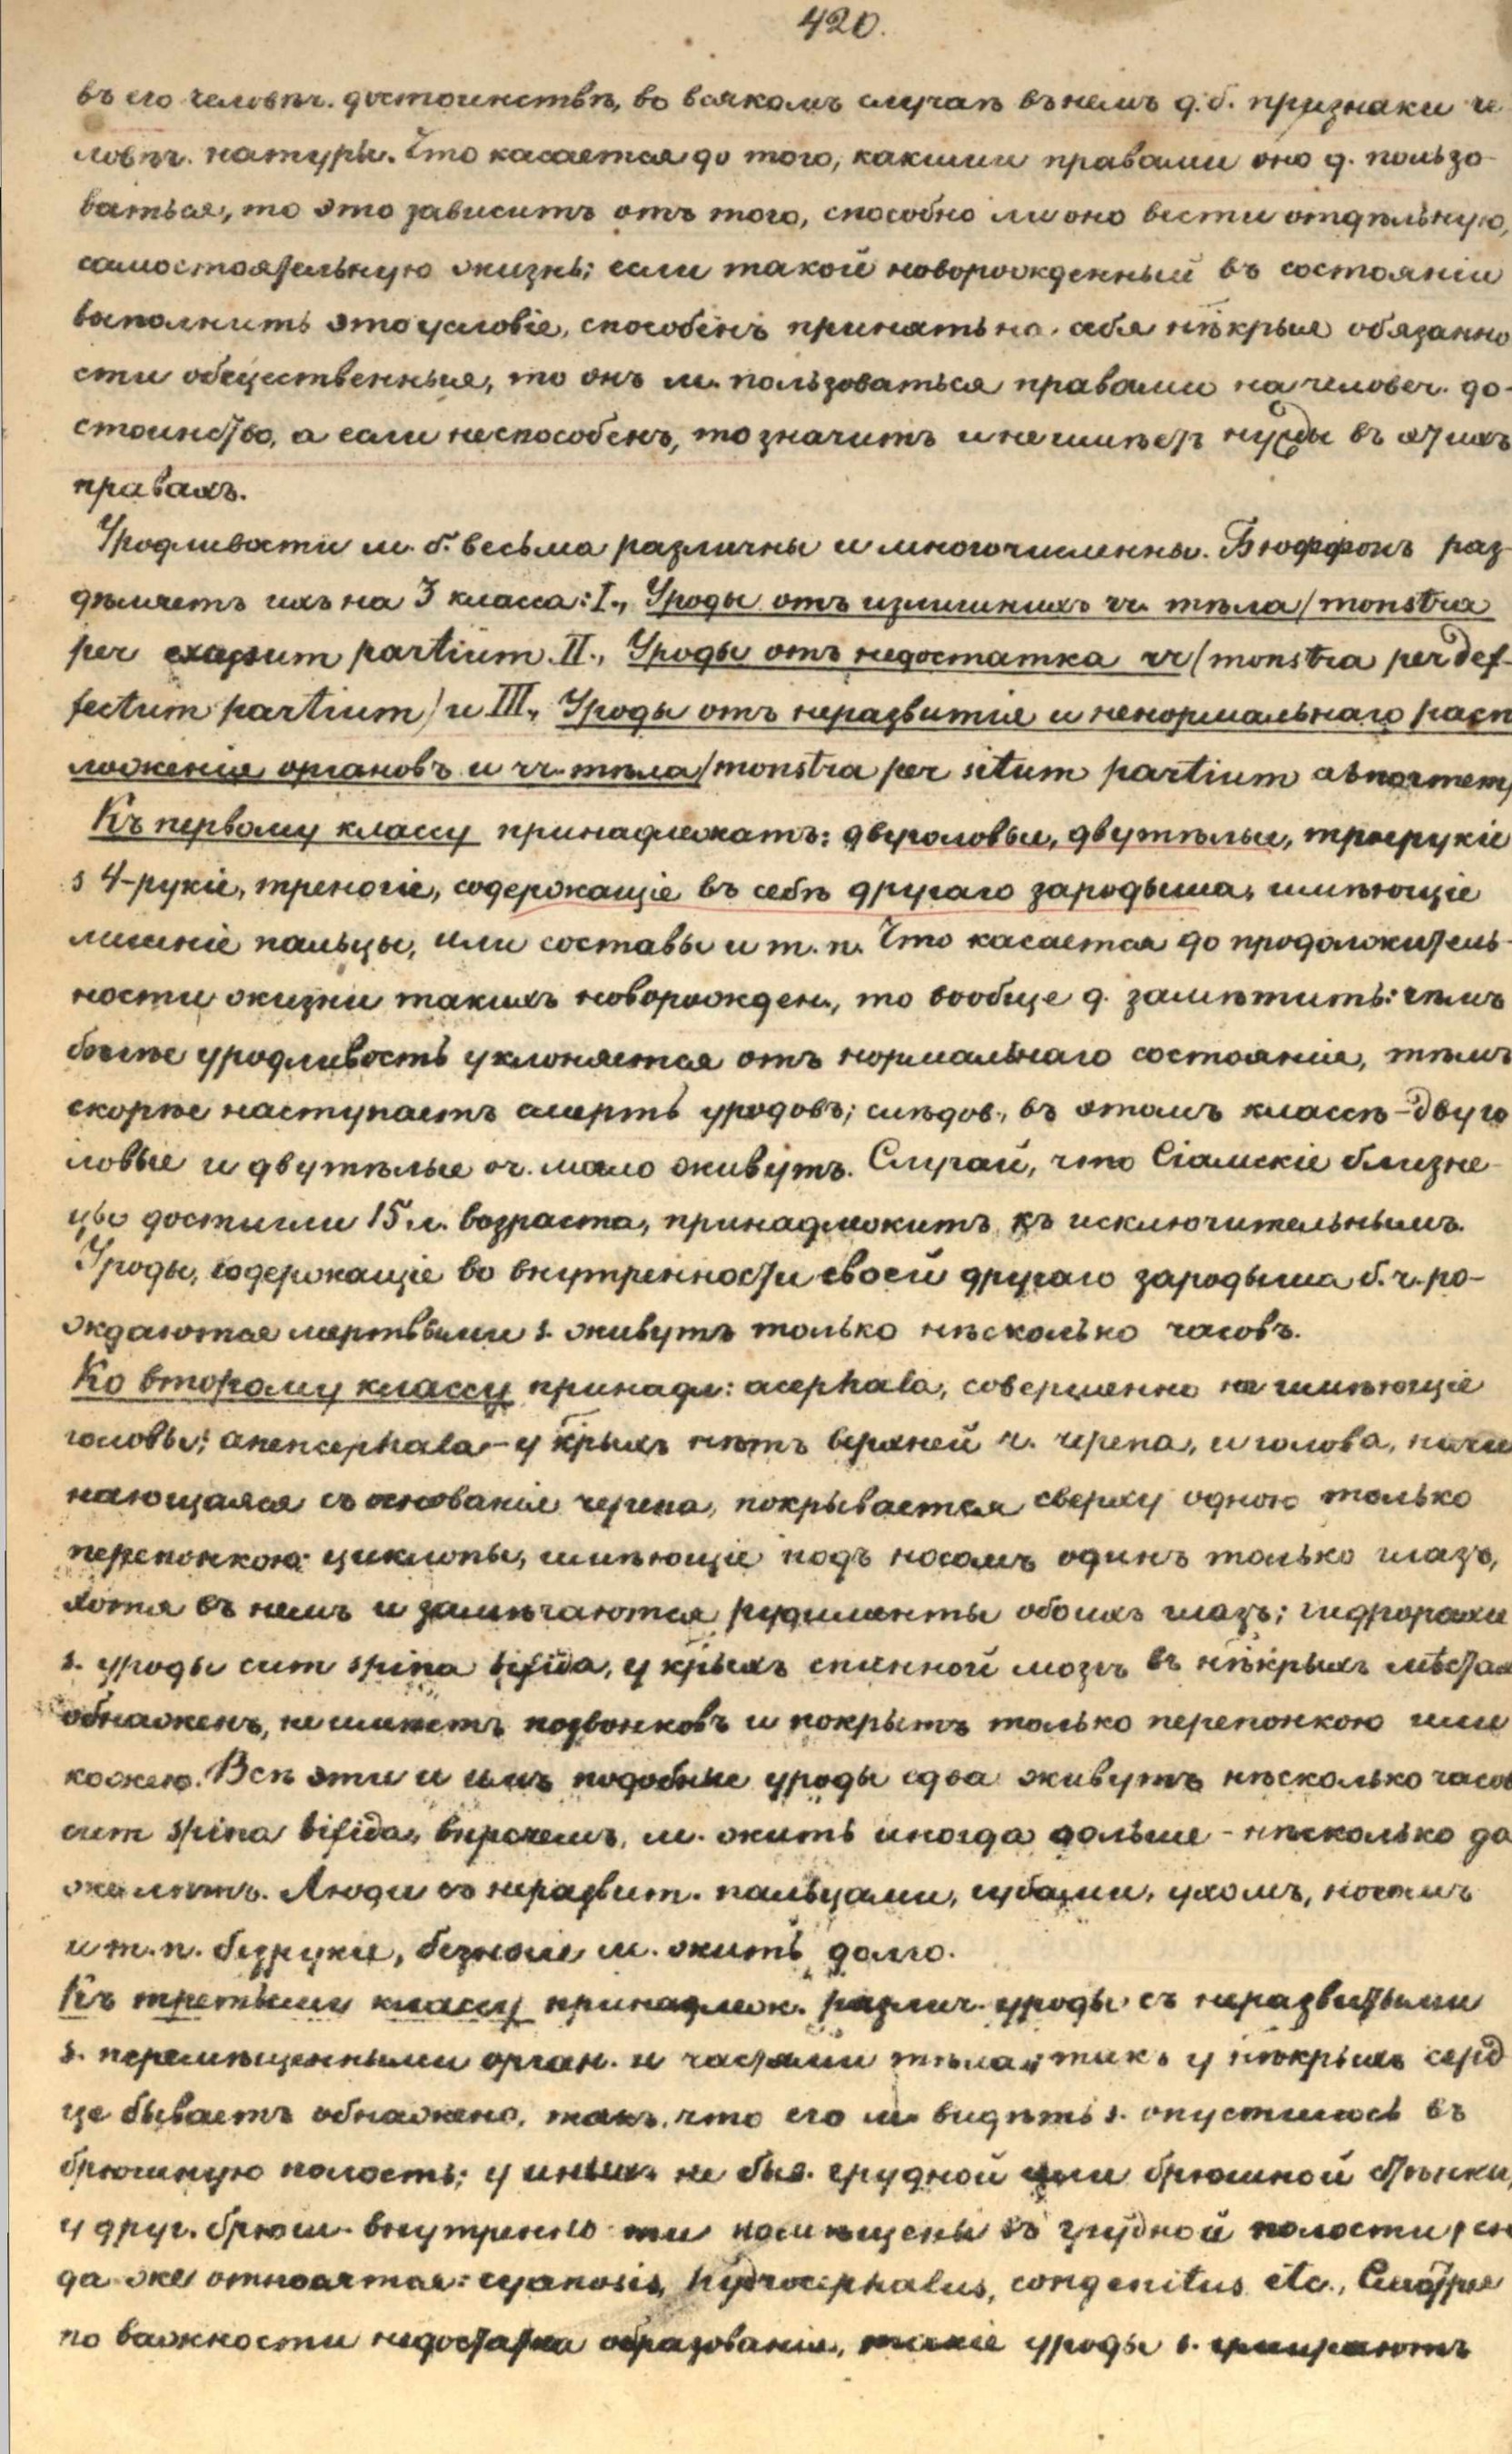 420.
въ его человѣч. достоинствѣ, во всякомъ случаѣ въ немъ д. б. признаки че
ловѣч. натуры. Что касается до того, какими правами оно д. пользо-
ваться, то это зависитъ отъ того, способно ли оно вести отдѣльную,
самостоятельную жизнь; если такой новорожденный въ состоянiи
выполнить это условiе, способенъ принять на себя нѣкрые обязанно
сти общественные, то онъ м. пользоваться правами на человеч. до-
стоинство, а если неспособенъ, то значитъ и не имѣетъ нужды въ этихъ
правахъ.
Уродливости м. б. весьма различны и многочисленны. Бюффонъ раз-
дѣляетъ ихъ на 3 класса: I., Уроды отъ излишнихъ чч. тѣла (monstra
per excessum partium. II., Уроды отъ недостатка чч (monstra per def-
fectum partium) и III., Уроды отъ неразвитiя и ненормальнаго расп
ложенiя органовъ и чч. тѣла (monstra per situm partium
Къ первому классу принадлежатъ: двуголовые, двутѣлые, трерукiе
s 4-рукiе, треногiе, содержащiе въ себѣ другаго зародыша, имѣющiе
лишнiе пальцы, или составы и т. п. Что касается до продолжитель-
ности жизни такихъ новорожден., то вообще д. замѣтить: чѣмъ
болѣе уродливость уклоняется отъ нормальнаго состоянiя, тѣмъ
скорѣе наступаетъ смерть уродовъ; слѣдов., въ этомъ классѣ - двуго
ловые и двутѣлые оч. мало живутъ. Случай, что Сiамскiе близне-
цы достигли 15 л. возраста, принадлежитъ къ исключительнымъ.
Уроды, содержащiе во внутренности своей другаго зародыша б. ч. ро-
ждаются мертвыми s. живутъ только нѣсколько часовъ.
Ко второму классу принадл: acephala, совершенно не имѣющiе
головы; anencephala - у крыхъ нѣтъ верхней ч. черепа, и голова, начи
нающаяся съ основанiя черепа, покрывается сверху одною только
перепонкою: циклопы, имѣющiе подъ носомъ одинъ только глазъ,
хотя въ немъ и замѣчаются рудименты обоихъ глазъ; гидрорахи
s. уроды cum spina bifida, у крыхъ спинной мозгъ въ нѣкрыхъ мѣстах
обнаженъ, не имѣетъ позвонковъ и покрытъ только перепонкою или
кожею. Всѣ эти и имъ подобные уроды едва живутъ нѣсколько часов
cum spina bifida, впрочемъ, м. жить иногда дольше - нѣсколько да
же лѣтъ. Люди съ неразвит. пальцами, губами, ухомъ, носомъ
и т. п. безрукiе, безногiе м. жить долго.
Къ третьему классу принадлеж. различ. уроды съ неразвитыми
s. перемѣщенными орган. и частями тѣла, такъ у нѣкрыхъ серд
це бываетъ обнажено, такъ, что его м. видѣть s. опустилось въ
брюшную полость; у иныхъ не быв. грудной или брюшной стѣнки,
у друг. брюш. внутренно сти помѣщены въ грудной полости, сю
да же относятся: cyanosis, hydrocephalus, congenitus etc., Смотря
по важности недостатка образованiя, такiе уроды s. умираютъ